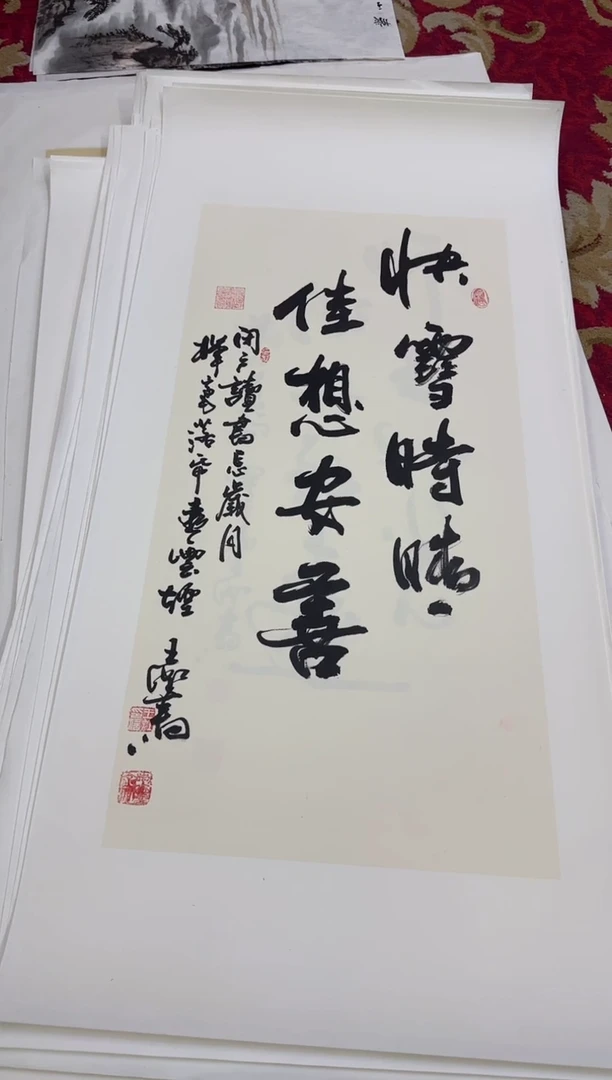 快雪時晴
佳想安善
閉戶讀書忘歲月
揮毫落帋雲煙
王書